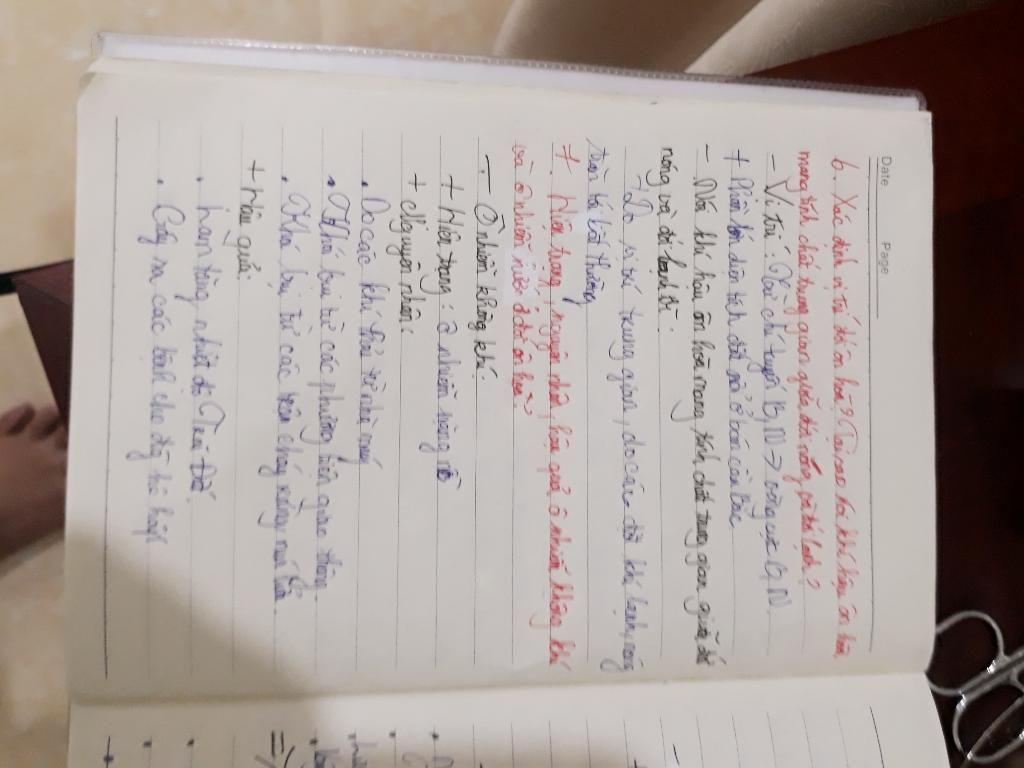 Date Page
6. Xác định vị trí đới ôn hoà? Tại sao nói khí hậu ôn hoà
mang tính chất trung gian giữa đới nóng và đới lạnh?
- Vị trí: Từ chí tuyến B, N -> vòng cực B, N.
+ Phần lớn diện tích đất nổi ở bán cầu Bắc
- Nói khí hậu ôn hoà mang tính chất trung gian giữa đới
nóng và đới lạnh vì:
Do vị trí trung gian, do các đợt khí lạnh, nóng
tràn bất thường
7. Hiện trạng, nguyên nhân, hậu quả ô nhiễm không khí
và ô nhiễm nước ở đới ôn hoà?
- Ô nhiễm không khí:
+ Hiện trạng: ô nhiễm nặng nề
+ Nguyên nhân:
. Do các khí thải từ nhà máy
. Khói bụi từ các phương tiện giao thông
. Khói bụi từ các trận cháy rừng, núi lửa.
+ Hậu quả:
. Làm tăng nhiệt độ Trái Đất.
. Gây ra các bệnh cho đg hô hấp